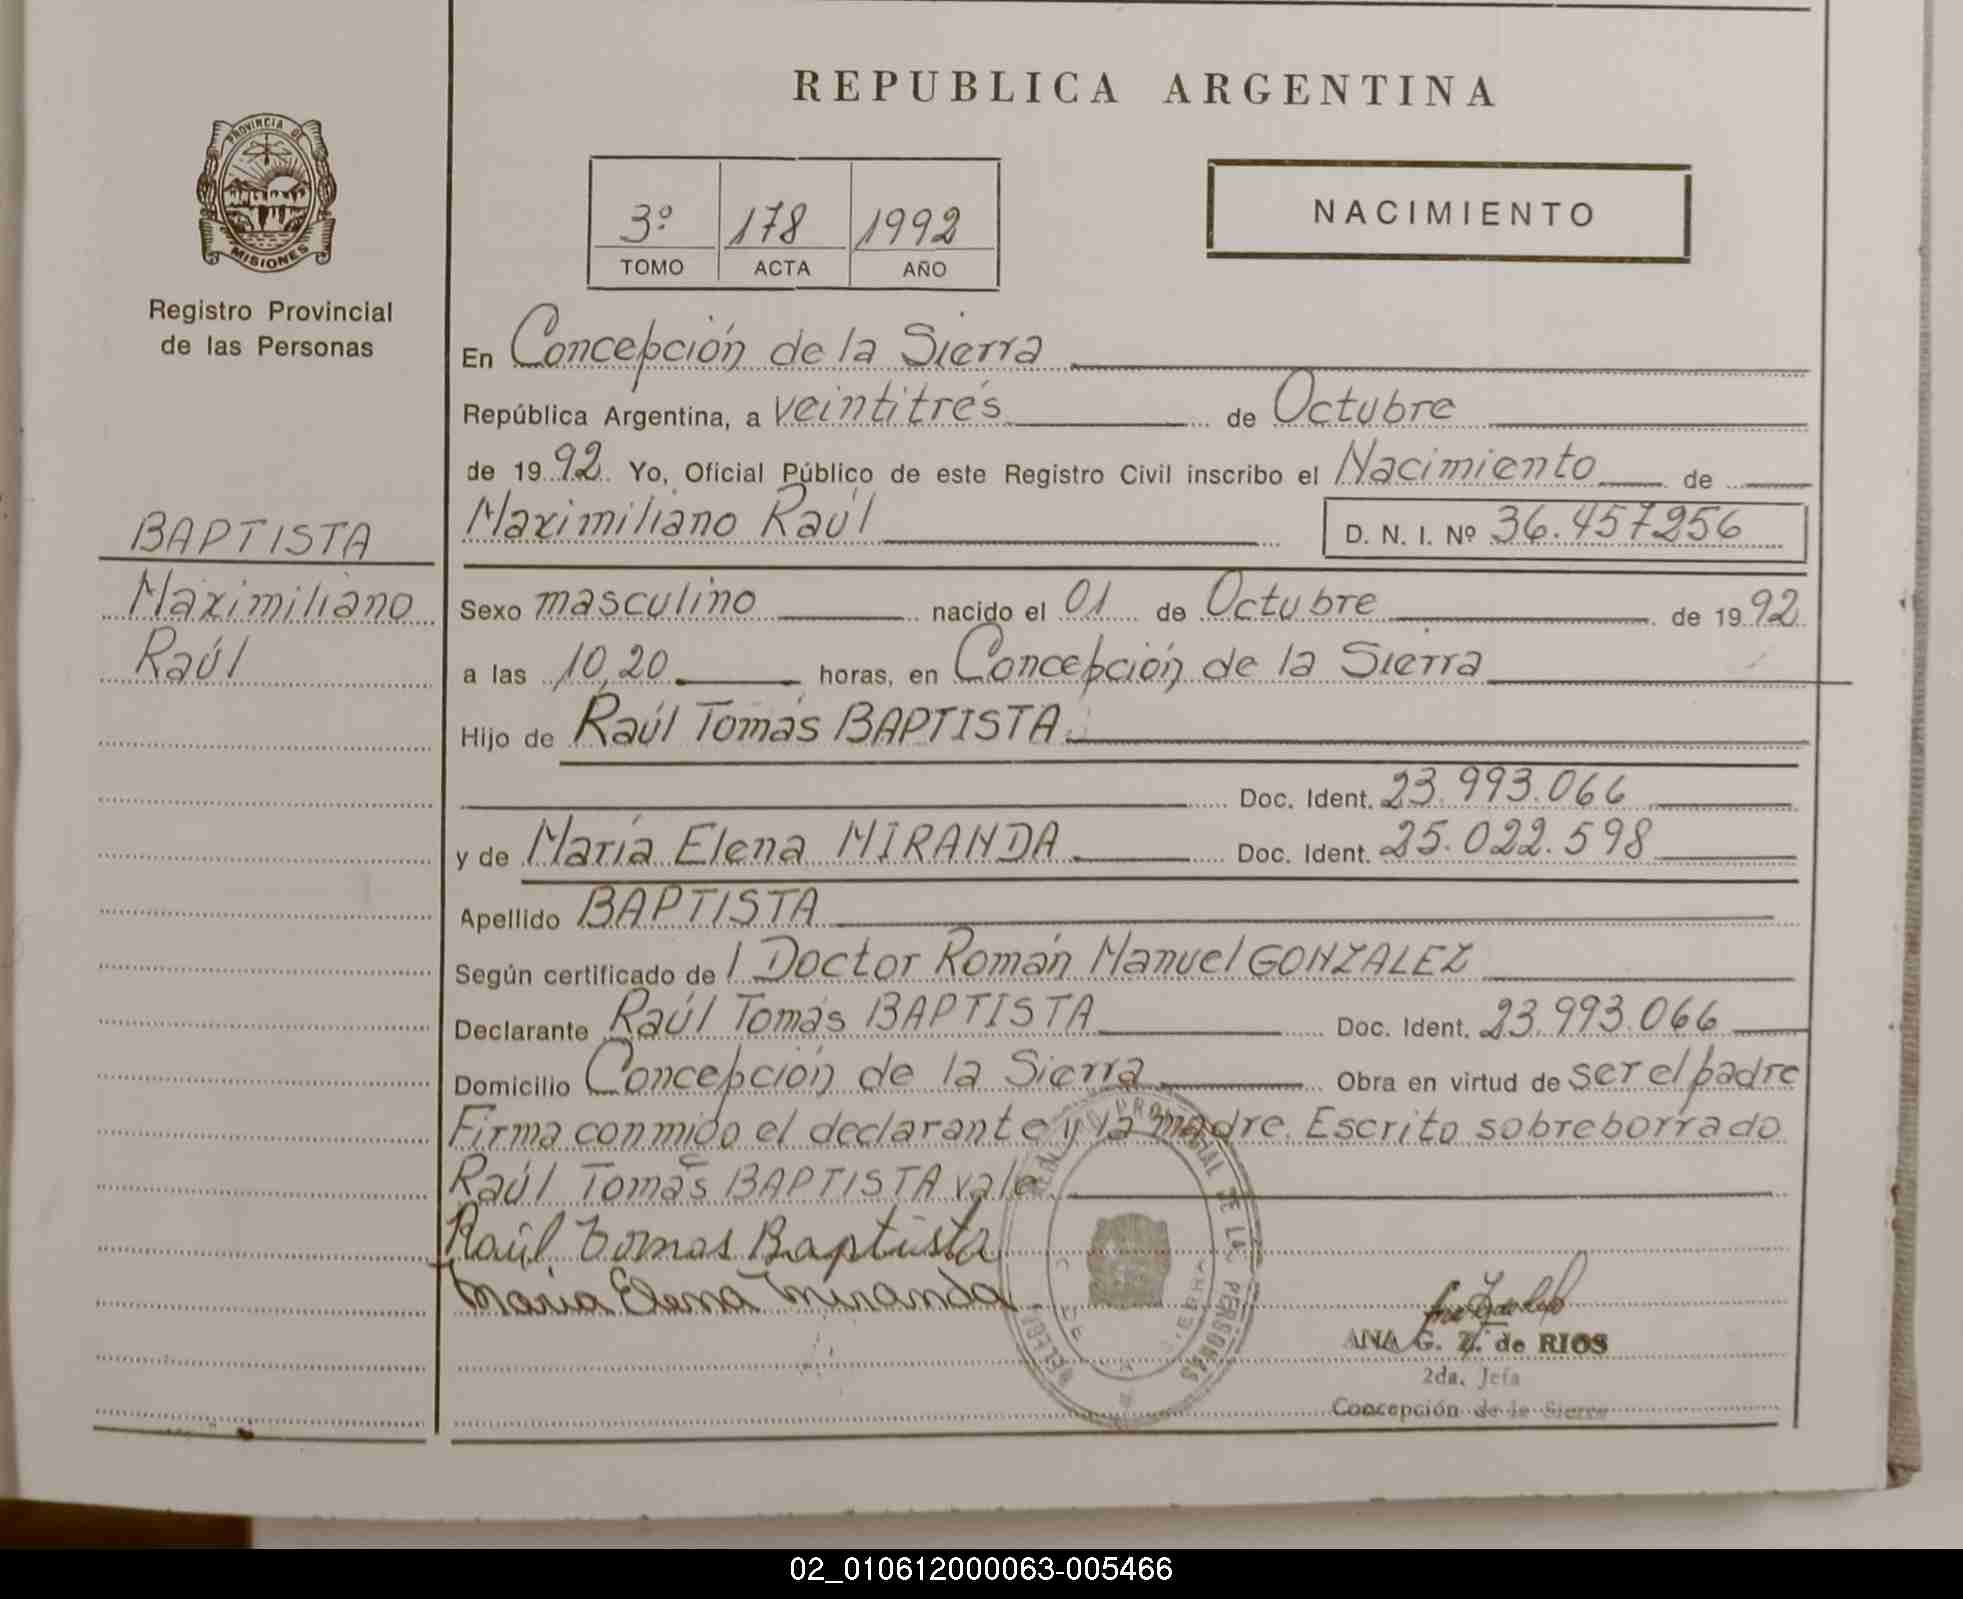 REPUBLICA ARGENTINA
PROVINCIA DE
MISIONES
Registro Provincial
de las Personas
3º 178 1992
TOMO ACTA AÑO
NACIMIENTO
En Concepción de la Sierra
República Argentina, a veintitrés de Octubre
de 1992. Yo, Oficial Público de este Registro Civil inscribo el Nacimiento de
Maximiliano Raúl D. N. I. Nº 36.457256
BAPTISTA
Maximiliano
Raúl
Sexo masculino nacido el 01 de Octubre de 1992
a las 10,20 horas, en Concepción de la Sierra
Hijo de Raúl Tomás BAPTISTA
Doc. Ident. 23.993.066
y de María Elena MIRANDA Doc. Ident. 25.022.598
Apellido BAPTISTA
Según certificado de l Doctor Román Manuel GONZALEZ
Declarante Raúl Tomás BAPTISTA Doc. Ident. 23.993.066
Domicilio Concepción de la Sierra Obra en virtud de ser el padre
Firma conmigo el declarante y la madre. Escrito sobreborrado
Raúl Tomás BAPTISTA vale
Raúl Tomas Baptista
Maria Elena Miranda
PROVINCIAL DE LAS PERSONAS
ANA G. Z. de RIOS
2da. Jefa
Concepción de la Sierra
02_010612000063-005466